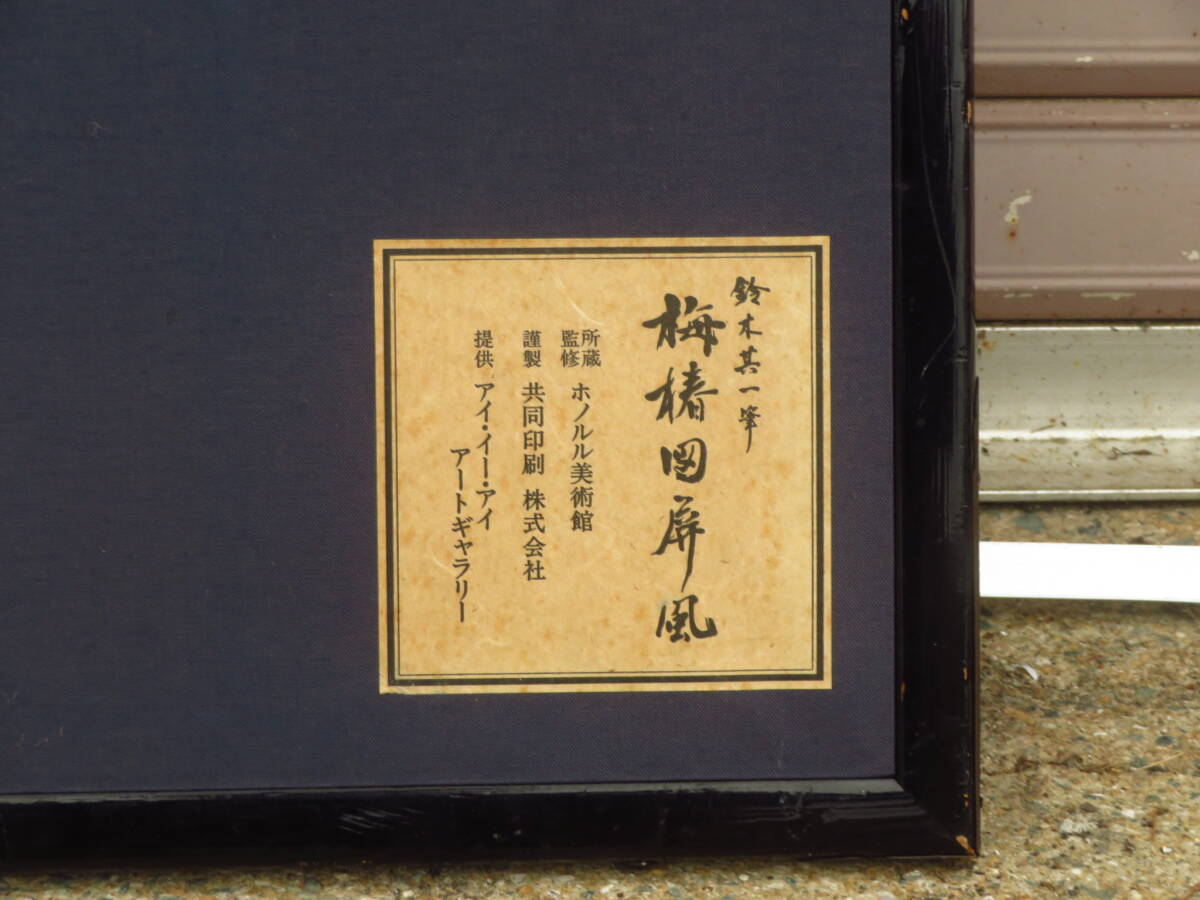 鈴木其一筆
梅椿図屏風
所蔵
監修 ホノルル美術館
謹製 共同印刷 株式会社
提供 アイ・イー・アイ
アートギャラリー